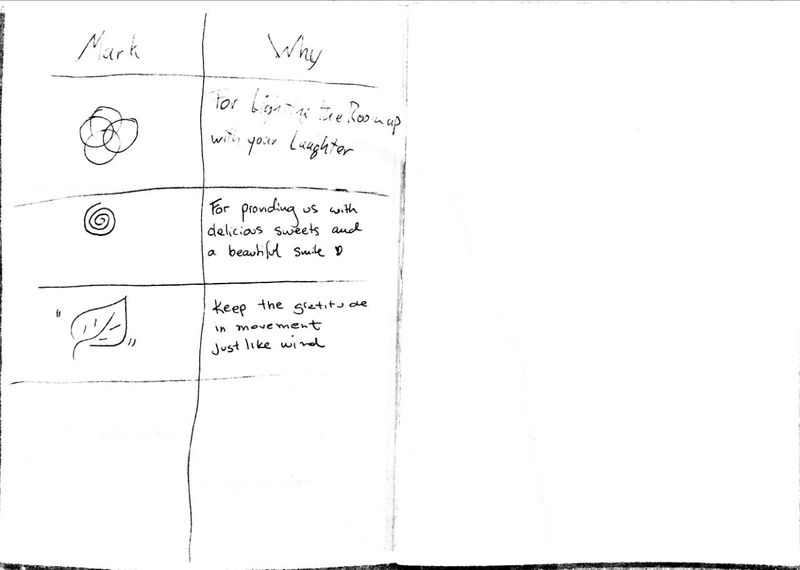 Mark
Why
For Lighting the Room up
with your Laughter
For providing us with
delicious sweets and
a beautiful smile
Keep the gratitude
in movement
Just like wind